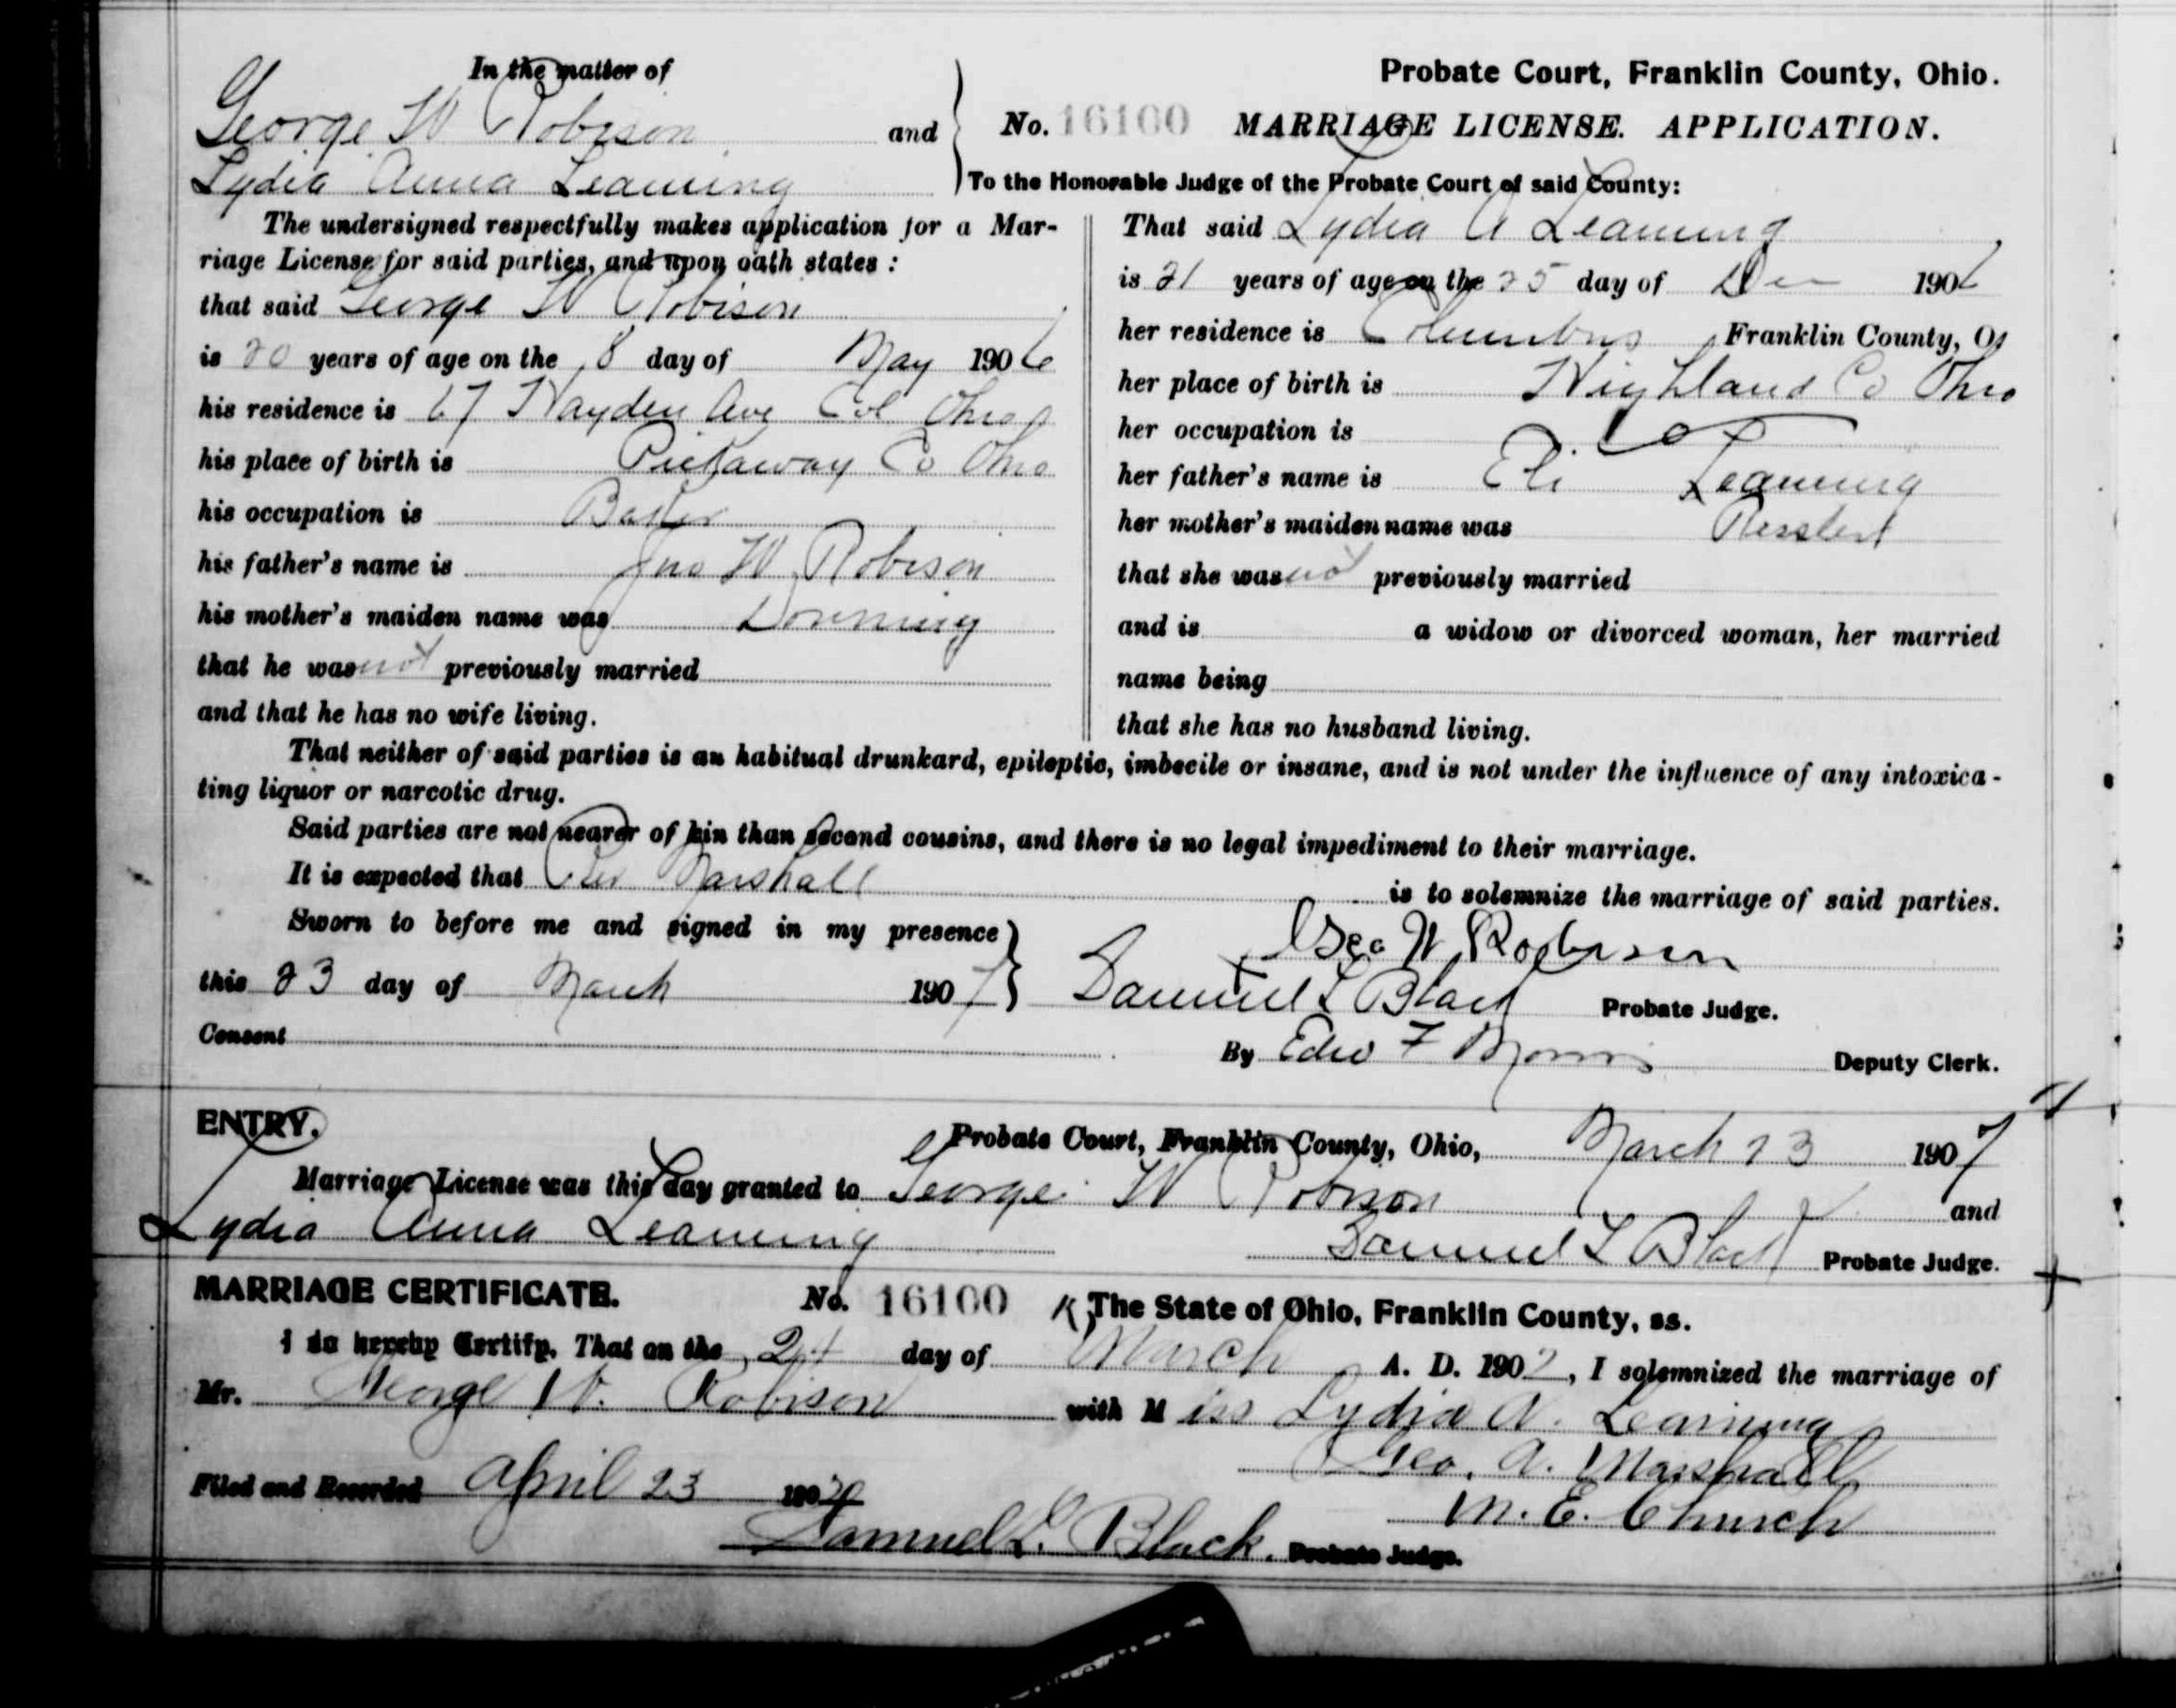 In the matter of
George W Robison and
Lydia Anna Leaming
Probate Court, Franklin County, Ohio.
No. 16100 MARRIAGE LICENSE. APPLICATION.
To the Honorable Judge of the Probate Court of said County:
The undersigned respectfully makes application for a Mar-
riage License for said parties, and upon oath states :
that said George W Robison
is 20 years of age on the 8 day of May 1906
his residence is 67 Hayden Ave Col Ohio
his place of birth is Pickaway Co Ohio
his occupation is
his father's name is Jno W Robison
his mother's maiden name was Downing
that he was not previously married
and that he has no wife living.
That said Lydia A Leaming
is 21 years of age on the 25 day of Dec 1906
her residence is Columbus Franklin County, O,
her place of birth is Highland Co Ohio
her occupation is
her father's name is Eli Leaming
her mother's maiden name was
that she was not previously married
and is a widow or divorced woman, her married
name being
that she has no husband living.
That neither of said parties is an habitual drunkard, epileptic, imbecile or insane, and is not under the influence of any intoxica-
ting liquor or narcotic drug.
Said parties are not nearer of kin than second cousins, and there is no legal impediment to their marriage.
It is expected that Rev Marshall is to solemnize the marriage of said parties.
Sworn to before me and signed in my presence
this 23 day of March 1907
Consent
Geo W Robison
Samuel L Black Probate Judge.
By Edw F Morris Deputy Clerk.
ENTRY.
Probate Court, Franklin County, Ohio, March 23 1907
Marriage License was this day granted to George W Robison and
Lydia Anna Leaming
Samuel L Black Probate Judge.
MARRIAGE CERTIFICATE. No. 16100 The State of Ohio, Franklin County, ss.
I do hereby Certify, That on the 24 day of March A. D. 1907, I solemnized the marriage of
Mr. George W. Robison with Miss Lydia A. Leaming
Geo. A. Marshall
M. E. Church
Filed and Recorded April 23 1907
Samuel L. Black. Probate Judge.